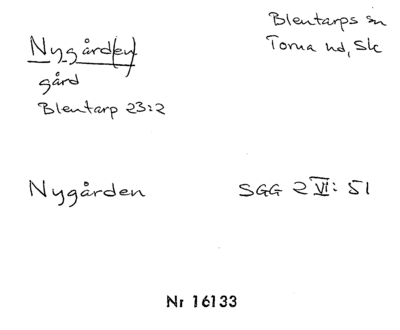 Nygård(en)
Blentarps sn
Torna hd, Sk
gård
Blentarp 23:2
Nygården
SGG 2 VI: 51
Nr 16133